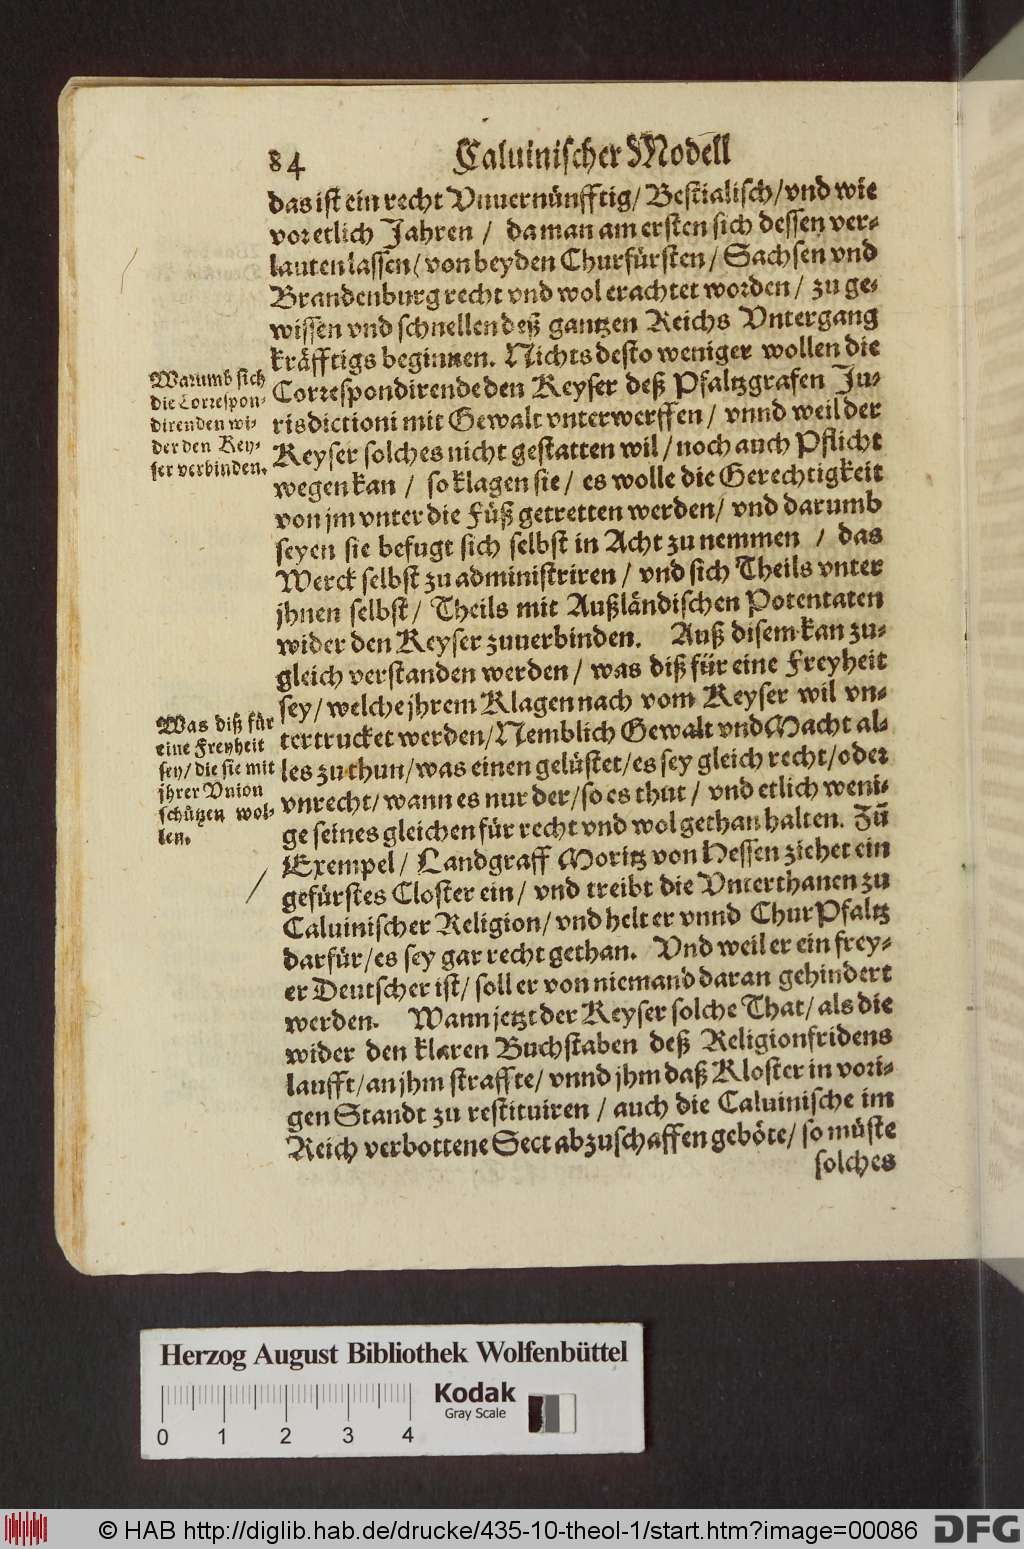 84
Caluinischer Modell
das ist ein recht Vnuernünfftig/ Bestialisch/ vnd wie
vor etlich Jahren / da man am ersten sich dessen ver-
lauten lassen/ von beyden Churfürsten/ Sachsen vnd
Brandenburg recht vnd wol erachtet worden/ zu ge-
wissen vnd schnellen deß gantzen Reichs Vntergang
kräfftigs beginnen. Nichts desto weniger wollen die
Correspondirende den Keyser deß Pfaltzgrafen Ju-
risdictioni mit Gewalt vnterwerffen/ vnnd weil der
Keyser solches nicht gestatten wil/ noch auch Pflicht
wegen kan / so klagen sie/ es wolle die Gerechtigkeit
von jm vnter die Füß getretten werden/ vnd darumb
seyen sie befugt sich selbst in Acht zu nemmen / das
Werck selbst zu administriren/ vnd sich Theils vnter
jhnen selbst/ Theils mit Außländischen Potentaten
wider den Keyser zuuerbinden. Auß disem kan zu-
gleich verstanden werden/ was diß für eine Freyheit
sey/ welche jhrem Klagen nach vom Keyser wil vn-
tertrucket werden/ Nemblich Gewalt vnd Macht al-
les zu thun/ was einen gelüstet/ es sey gleich recht/ oder
vnrecht/ wann es nur der/ so es thut/ vnd etlich weni-
ge seines gleichen für recht vnd wol gethan halten. Zū
Exempel/ Landgraff Moritz von Hessen ziehet ein
gefürstes Closter ein/ vnd treibt die Vnterthanen zu
Caluinischer Religion/ vnd helt er vnnd ChurPfaltz
darfür/ es sey gar recht gethan. Vnd weil er ein frey-
er Deutscher ist/ soll er von niemand daran gehindert
werden. Wann jetzt der Keyser solche That/ als die
wider den klaren Buchstaben deß Religionfridens
laufft/ an jhm straffte/ vnnd jhm daß Kloster in vori-
gen Standt zu restituiren / auch die Caluinische im
Reich verbottene Sect abzuschaffen geböte/ so müste
solches
Warumb sich
die Correspon-
direnden wi-
der den Key-
ser verbinden.
Was diß für
eine Freyheit
sey/ die sie mit
jhrer Vnion
schützen wol-
len.
Herzog August Bibliothek Wolfenbüttel
Kodak
Gray Scale
0 1 2 3 4
© HAB http://diglib.hab.de/drucke/435-10-theol-1/start.htm?image=00086
DFG